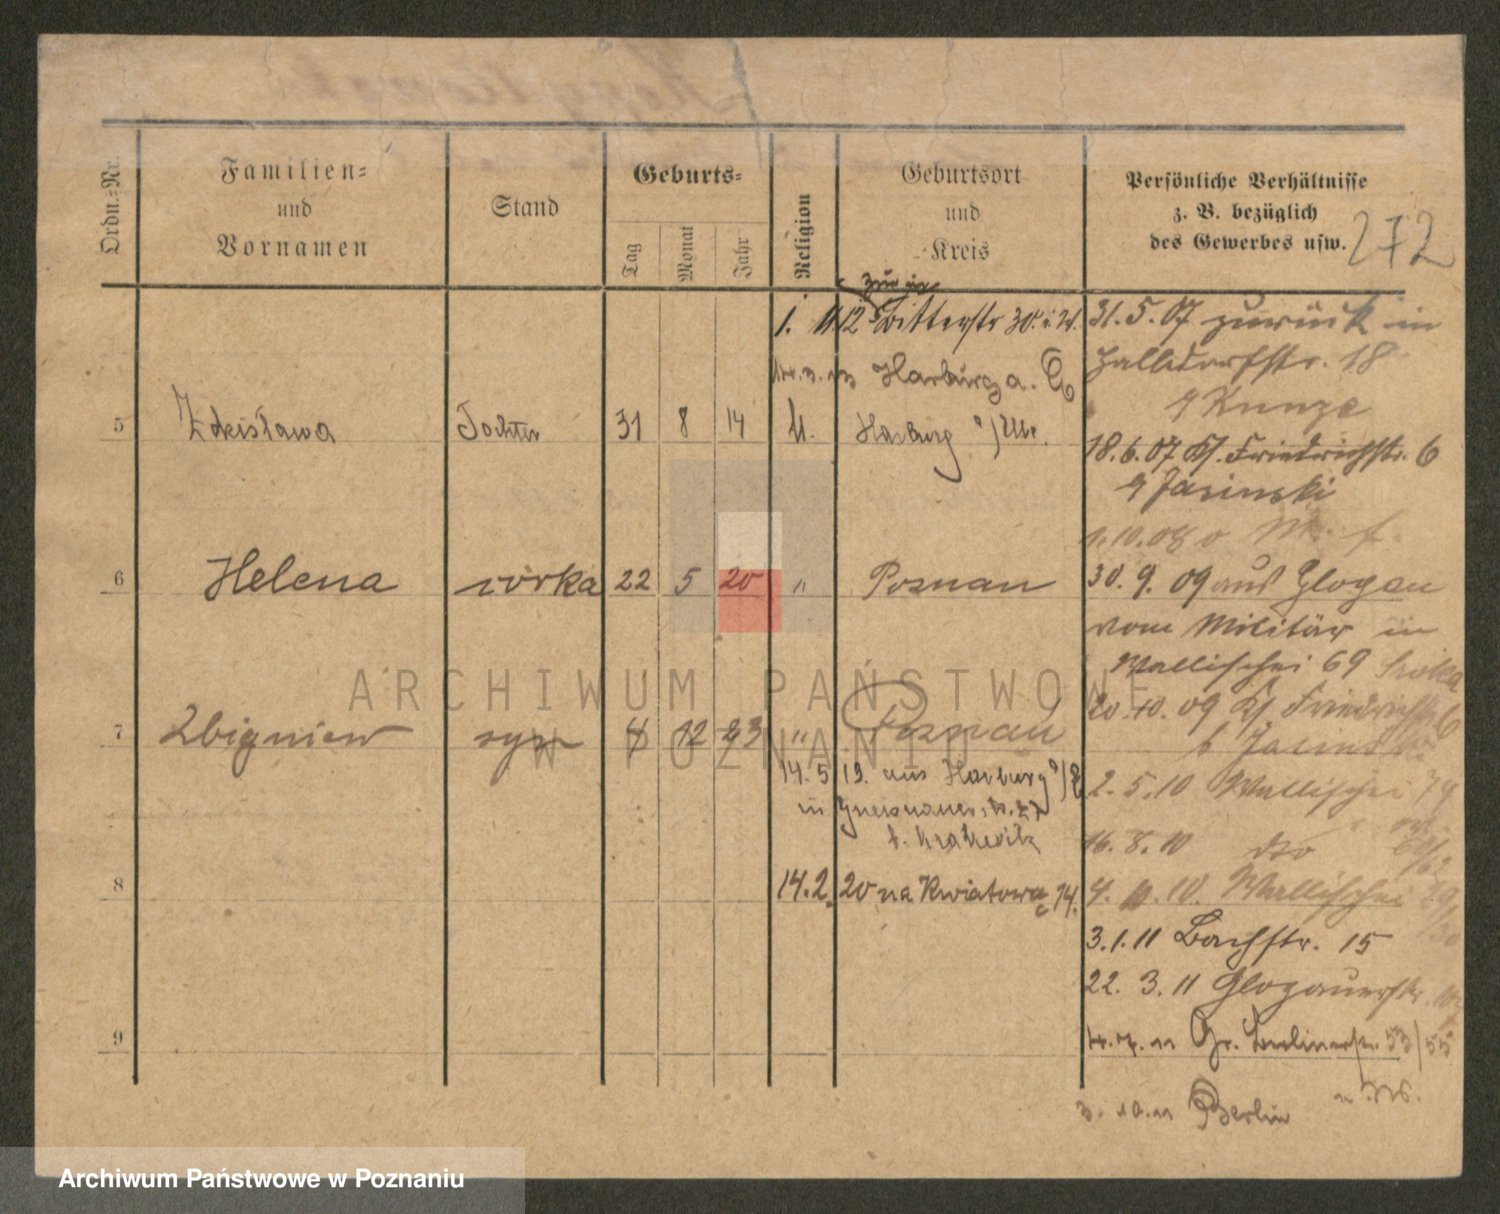 Ordn.=Nr.
Familien=
und
Vornamen
Stand
Geburts=
Tag
Monat
Jahr
Religion
Geburtsort
und
Kreis
Persönliche Verhältnisse
z. B. bezüglich
des Gewerbes usw.
272
zur in
1. 12 Bitterstr 30.
Harburg a. E
5 Zdzisława Tochter 31 8 14 k. Harburg a/Elbe.
6 Helena córka 22 5 20 " Poznan
7 Zbigniew syn 4 12 23 " Poznań
14.5 13. aus Harburg a/E
in Gneisenauerstr. 27
b.
8
14.2. 20 na Kwiatową 14.
9
31.5.07 zurück in
18
Kunze
18.6.07 Friedrichstr. 6
Jasinski
1.10.08 M.
30.9.09 aus Glogau
vom Militär in
Wallischei 69
20.10.09 Friedrichstr 6
b Jasinski
2.5.10 Wallischei 74
16.8.10 dto
4. 10. Wallischei
3.1.11 Bachstr. 15
22.3.11 Glogauerstr.
Gr. Berlinerstr. 53/55
3.10.11 Berlin
ARCHIWUM PAŃSTWOWE
W POZNANIU
Archiwum Państwowe w Poznaniu